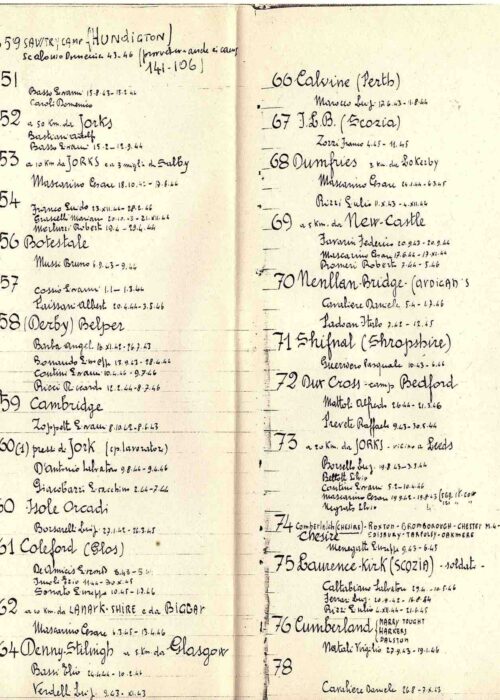 59 SAWTRY CAMP (HUNDIGTON)
Scalonio Domenico 43-46 (provare anche ai camp
141-106)
51
Basso Evami 13.8.43-13.2.46
Caroli Domenico
52 a 50 Km. da Jorks
Bastiani Adolf
Basso Evami 15.2-12.9.44
53 a 10 Km da JORKS e a 3 migli di Salby
Mascarino Cesare 18.10.42-17.6.44
54
Franco Guido 23.XII.44-28.6.46
Grasselli Mariano 20.10.43-21.XII.44
Merluzzi Robert 19.4-29.4.44
56 Botestale
Mussi Bruno 6.9.43-9.44
57
Cossio Evami 1.1-1.3.44
Paissan Albert 20.4.44-3.5.46
58 (Derby) Belper
Barba Angel 16.XI.42-26.7.43
Bonando Ersoff 13.9.43-28.4.44
Contini Evami 10.4.44-9.7.46
Ricci Riccardo 12.2.44-8.7.46
59 Cambridge
Zoppett Evami 8.10.42-8.6.43
60(1) presso di JORK (cp. lavorator)
D'Antonio Salvator 9.8.44-9.4.46
Giacobazzi Evacchino 2.44-7.46
60 Isole Orcadi
Borsarelli Luig. 27.1.42-26.3.45
61 Coleford (Glos)
De Amicis 8.43-5.
Imoli Ezio 11.44-30.X.45
Sonato Euseppe 10.45-17.46
62 a 20 Km. da LANARK-SHIRE e da BIGBAR
Mascarino Cesare 4.3.45-13.4.46
64 Denny-Stilingh a 5 Km da Glasgow
Bassi Elio 24.4.44-10.4.46
Verdell Luig. 9.43-XI.43
66 Calvine (Perth)
Marocco Luig. 17.6.43-1.8.44
67 J.L.B. (Scozia)
Zorzi Franco 4.45-11.45
68 Dumfries 3 Km da Lokerby
Mascarino Cesar 24.1.44-6.3.45
Rizzi Eulio 11.X.43-4.XII.44
69 a 5 Km. da New-Castle
Favarin Federico 20.9.43-20.9.44
Mascarino Cesar 17.6.44-17.XI.44
Romeri Robert 7.44-5.46
70 Nenllan-Bridge-(
Cavaliere Daniele 5.4-1.7.46
Padoan Italo 7.42-12.45
71 Shifnal (Shropshire)
Guerriero Pasquale 10.43-6.46
72 Dux Cross-camp Bedford
Mattoli Alfredo 2.6.44-21.3.46
Prevete Raffaele 9.43-30.5.44
73 a 20 Km. da JORKS-vicino a Leeds
Borsello Luig. 19.8.43-3.9.44
Bettoti Elvio
Contini Evami 5.2-10.4.46
Mascarino Cesar 19.9.42-19.8.43
Negrato Elvio
74 Comberleich (CHESIRE)-ROXTON-BROMBOROUGH-CHESTET M.4-
chesire EDISBURY-TARPOLEY-OAKMERE
Menegatti Euseppe 9.43-6.45
75 Laurence-Kirk (SCOZIA)-soldat-
Caltabiano Salvator 29.4-10.5.46
Ferrari Luig. 20.9.42-16.8.44
Rizzi Eulio 4.XII.44-21.6.45
76 Cumberland (MARRY TOUGHT
HARKERS
DALSTON
Natali Virgilio 27.9.43-19.1.46
78
Cavaliere Daniele 26.8-7.X.43